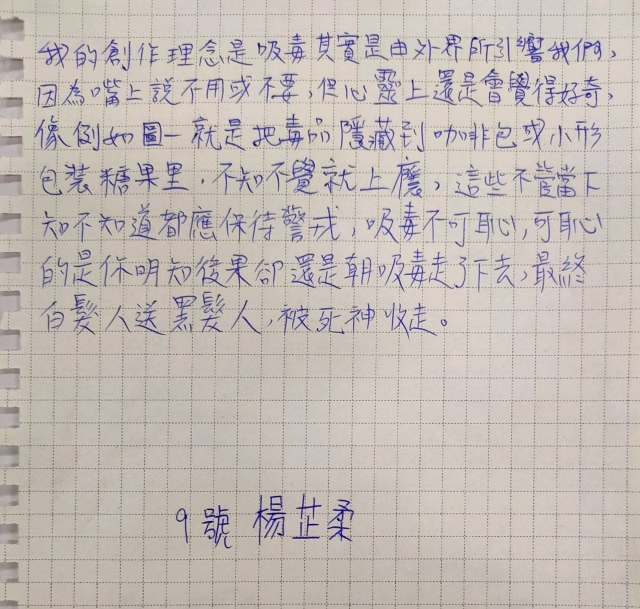 我的創作理念是吸毒其實是由外界所引響我們,
因為嘴上說不用或不要,但心靈上還是會覺得好奇,
像例如圖一就是把毒品隱藏到咖啡包或小形
包裝糖果里,不知不覺就上癮,這些不管當下
知不知道都應保待警戒,吸毒不可恥,可恥
的是你明知後果卻還是朝吸毒走了下去,最終
白髮人送黑髮人,被死神收走。
9號 楊芷柔